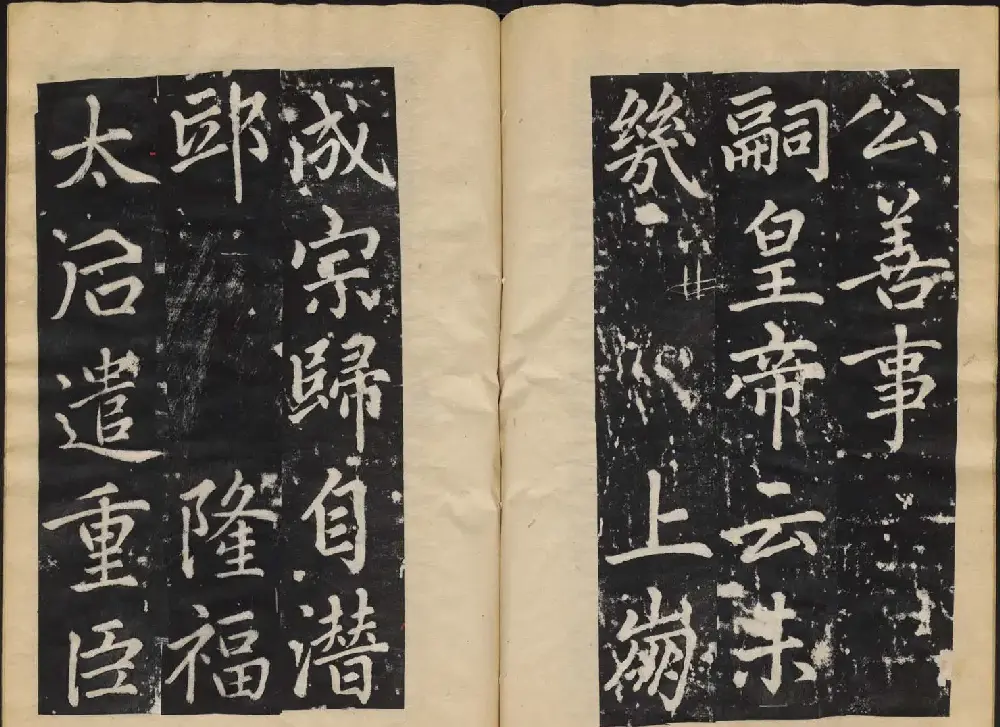 公善事
嗣皇帝云未
幾上崩
成宗歸自潛
邸隆福
太后遣重臣